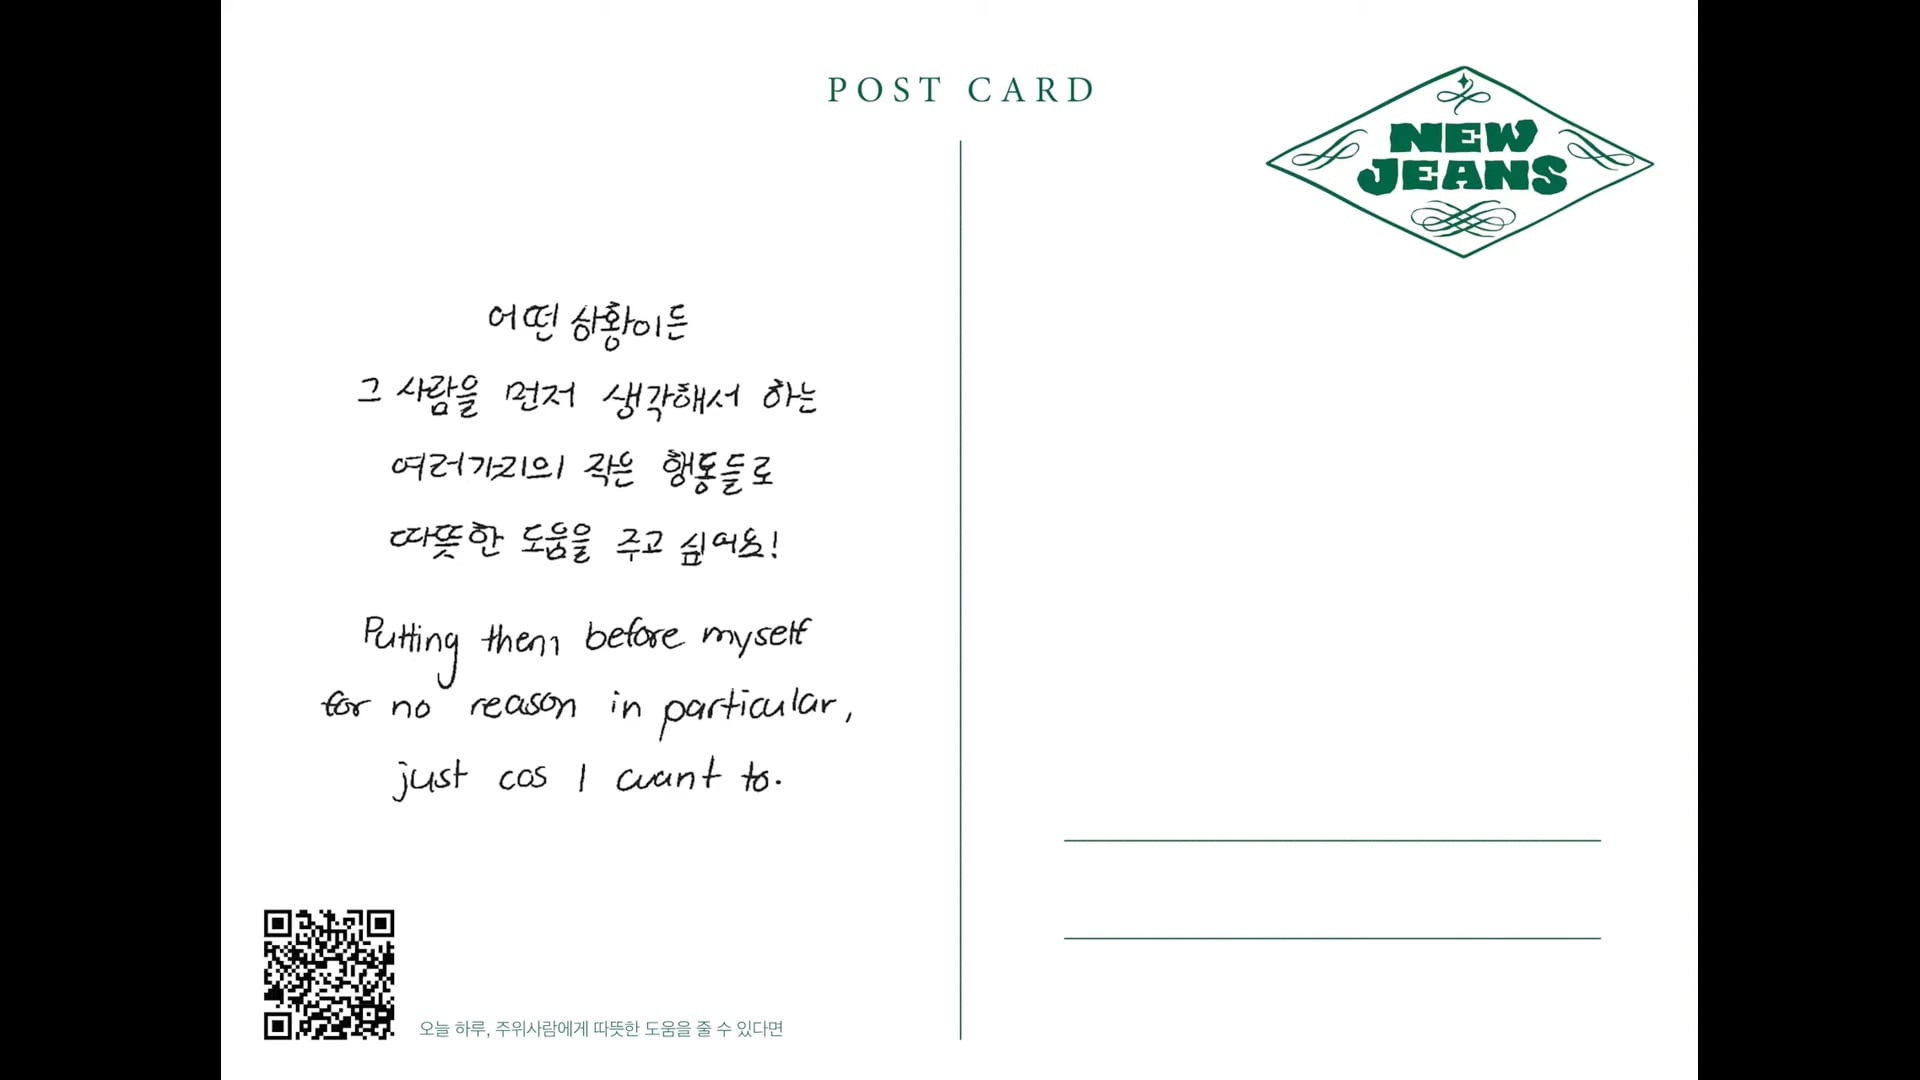 POST CARD
NEW
JEANS
어떤 상황이든
그 사람을 먼저 생각해서 하는
여러가지의 작은 행동들로
따뜻한 도움을 주고 싶어요!
Putting them before myself
for no reason in particular,
just cos I want to.
오늘 하루, 주위사람에게 따뜻한 도움을 줄 수 있다면